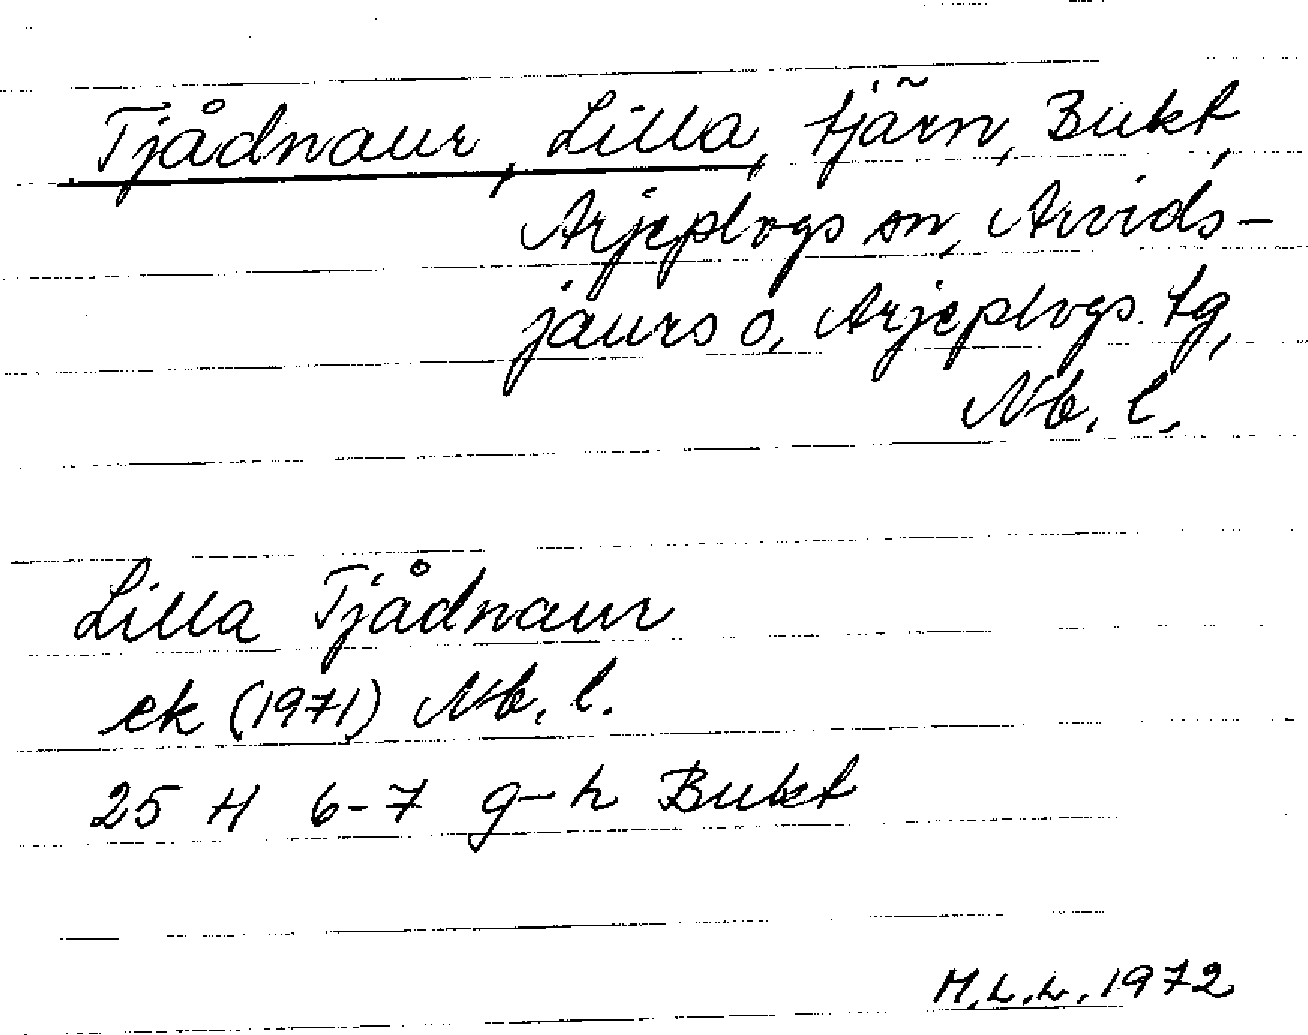 Tjådnaur, Lilla, tjärn, Bukt,
Arjeplogs sn, Arvids-
jaurs o, Arjeplogs tg,
Nb. l.
Lilla Tjådnaur
ek (1971) Nb. l.
25 H 6-7 g-h Bukt
H.L.L. 1972